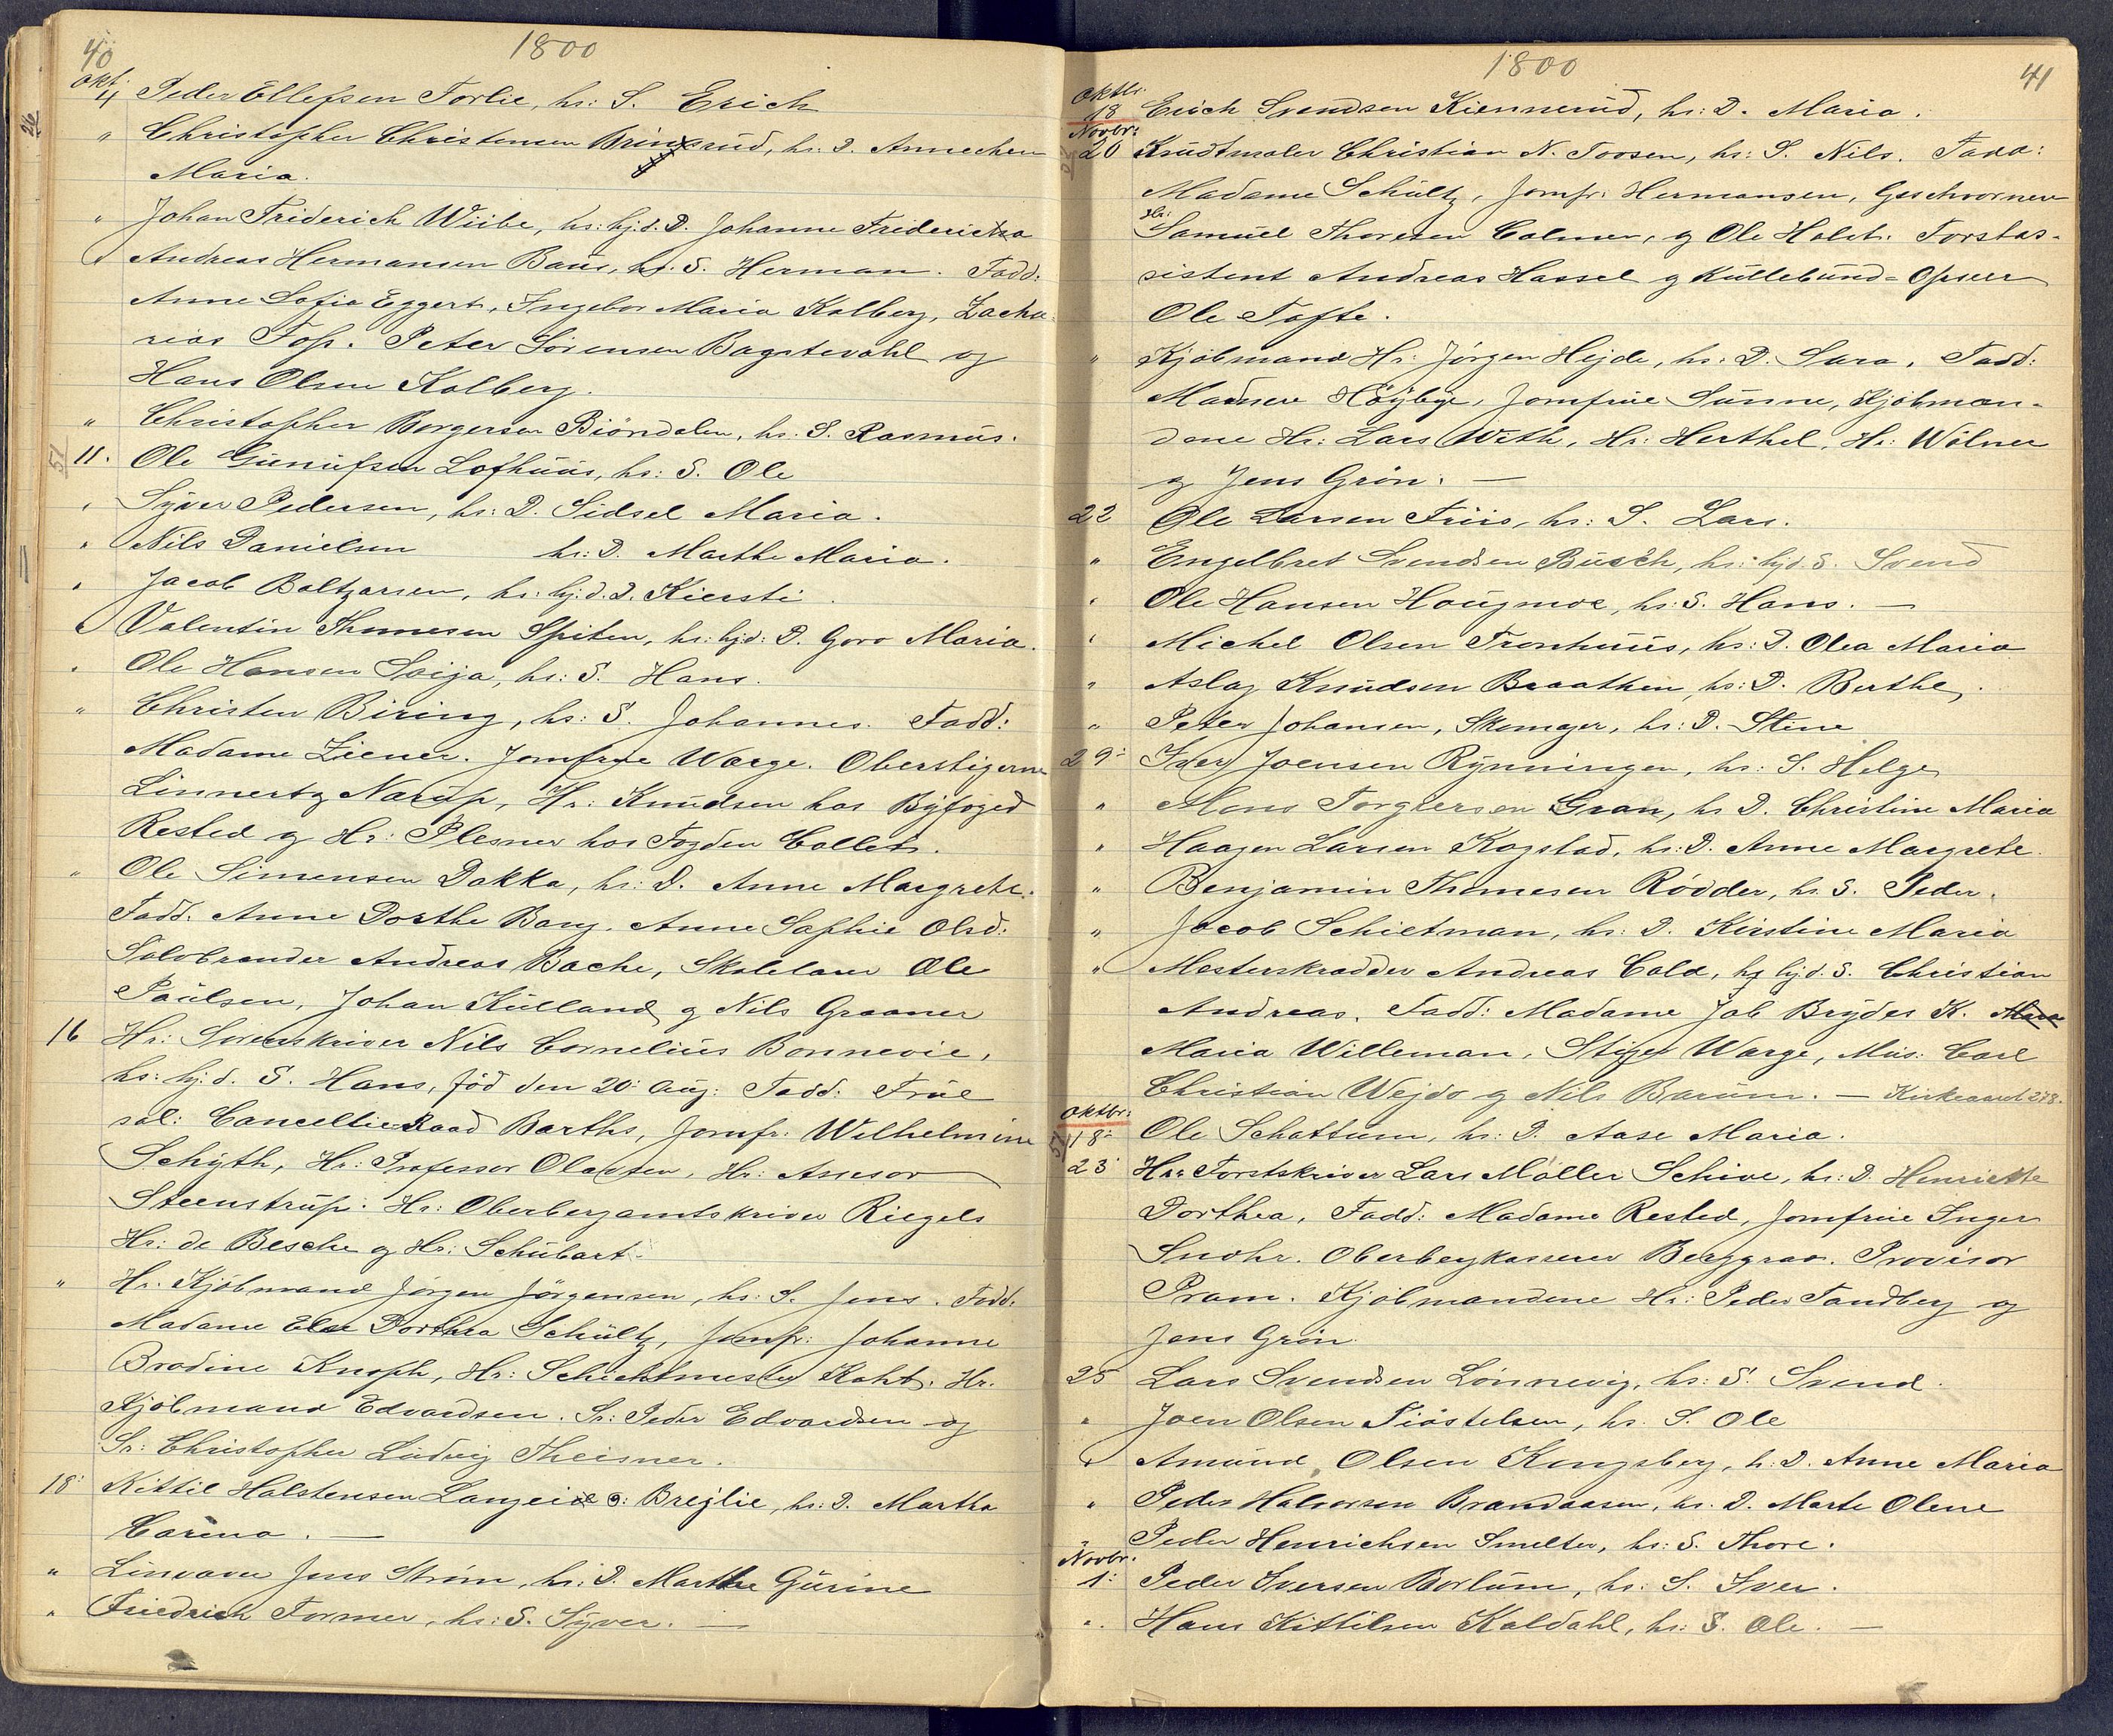 40
1800
Okt.
4 Peder Ellefsen Torlie, hs: S. Erich
" Christopher Christensen Brinsrud, hs. D. Annechen
Maria.
" Johan Friderich Wiibe, hs: hj.d. D. Johanne Fridericka
Andreas Hermansen Baus, hs. S. Herman. Fadd:
Anne Sofia Eggert, Ingebor Maria Kolberg, Zacha-
rias Foss. Peter Sörensen Bagstevahl og
Hans Olsen Kolberg.
" Christopher Borgersen Biöndalen, hs. S. Rasmus.
51
11. Ole Gunufsen Lofhuus, hs: S. Ole
" Syver Pedersen, hs: D. Sidsel Maria.
" Nils Danielsen hs: D. Marthe Maria.
" Jacob Boltzarsen, hs: hj.d. D. Kiersti.
" Valentin Thomesen Spiten, hs: hjd: D. Goro Maria.
" Ole Hansen Svija, hs: S. Hans.
" Christen Biring, hs: S. Johannes. Fadd:
Madame Ziener. Jomfrue Warge. Oberstigerne
Linnertz Narup, Hr: Knudsen hos Byfoged
Rested og Hr: Plesner hos Fogden Collett.
" Ole Simensen Dokka, hs: D. Anne Margrete.
Fadd. Anne Dorthe Bang. Anne Saphie Olsd:
Sölvbrender Andreas Bache, Skolelærer Ole
Paulsen, Johan Kulland og Nils Graaner
16 Hr: Sorenskriver Nils Cornelius Bonnevie,
hs: hj.d. S. Hans, föd den 20: Aug: Fadd: Frue
sal: CancellieRaad Barths, Jomfr: Wilhelmine
Schyth, Hr: Professor Olavsen, Hr: Assesor
Steenstrup. Hr: Oberbergamtskriver Riegels
Hr: de Besche og Hr: Schubart.
" Hr. Kjöbmand Jörgen Jörgensen, hs: S. Jens. Fadd.
Madame Else Dorthea Schultz, Jomfr: Johanne
Brodine Knoph, Hr: Schichtmester Kahts. Hr.
Kjöbmand Edvardsen. Sr: Peder Edvardsen og
Sr: Christopher Ludvig Theisner.
18: Kittil Halstensen Langeid ɔ: Brejlie, hs: D. Martha
Carina. —
" Linvæver Jens Ström, hs: D. Marthe Gurine
" Friedrich Former, hs: S. Syver. —
1800
41
Oktbr.
18 Erich Svendsen Kiennerud, hs: D. Maria.
Novbr:
20 Knudtmaler Christian N. Toosen, hs: S. Nils. Fadd:
Madame Schultz, Jomfr: Hermansen, Geschvornere
Hr: Samuel Thoresen Colmer, og Ole Holst. Forstas-
sistent Andreas Hassel og Kullebund-Opseer
Ole Tofte.
" Kjöbmand Hr: Jörgen Hejde, hs: D. Sara. Fadd:
Madame Höybye, Jomfrue Sunne, Kjöbmæn-
dene Hr: Lars With, Hr: Herthel, Hr: Wölner
og Jens Grön. —
22 Ole Larsen Friis, hs: S. Lars.
" Engelbret Svendsen Busch, hs: hj.d. S. Svend
" Ole Hansen Hougmoe, hs: S. Hans. —
" Michel Olsen Tronhuus, hs: D. Olea Maria
" Aslag Knudsen Braathen, hs: D. Berthe.
" Peter Johansen, Skomager, hs: D. Stine
29: Iver Joensen Rynningen, hs: S. Helge
" Mons Torgiersen Gran, hs D. Christine Maria
" Haagen Larsen Kogstad, hs: D. Anne Margrete.
" Benjamin Thomesen Rödder, hs. S. Peder.
" Jacob Schietman, hs: D. Kirstine Maria
" Mesterskrædder Andreas Cold, hs hj.d. S. Christian
Andreas. Fadd: Madame Job Brydes K.
Maria Willeman, Stiger Warge, Mus: Carl
Christian Wejdo og Nils Barum. — Kirkeaaret 278.
Oktbr:
18: Ole Schattum, hs: D. Aase Maria.
23: Hr: Forstskriver Lars Möller Schive, hs: D. Henriette
Dorthea, Fadd: Madame Rested, Jomfrue Inger
Snohr. Oberbergkasserer Berggrav. Provisor
Pram. Kjöbmændene Hr: Peder Tandberg og
Jens Grön.
25 Lars Svendsen Lönnevig, hs: S. Svend.
" Joen Olsen Tiöstelsen, hs: S. Ole
Amund Olsen Kongsberg, h: D. Anne Maria
" Peder Halvorsen Brandaasen, hs. D. Marte Olene
" Peder Henrichsen Smelter, hs: S. Thore.
Novbr.
1: Peder Iversen Borlum, hs: S. Iver.
" Hans Kittilsen Kaldahl, hs: S. Ole. —